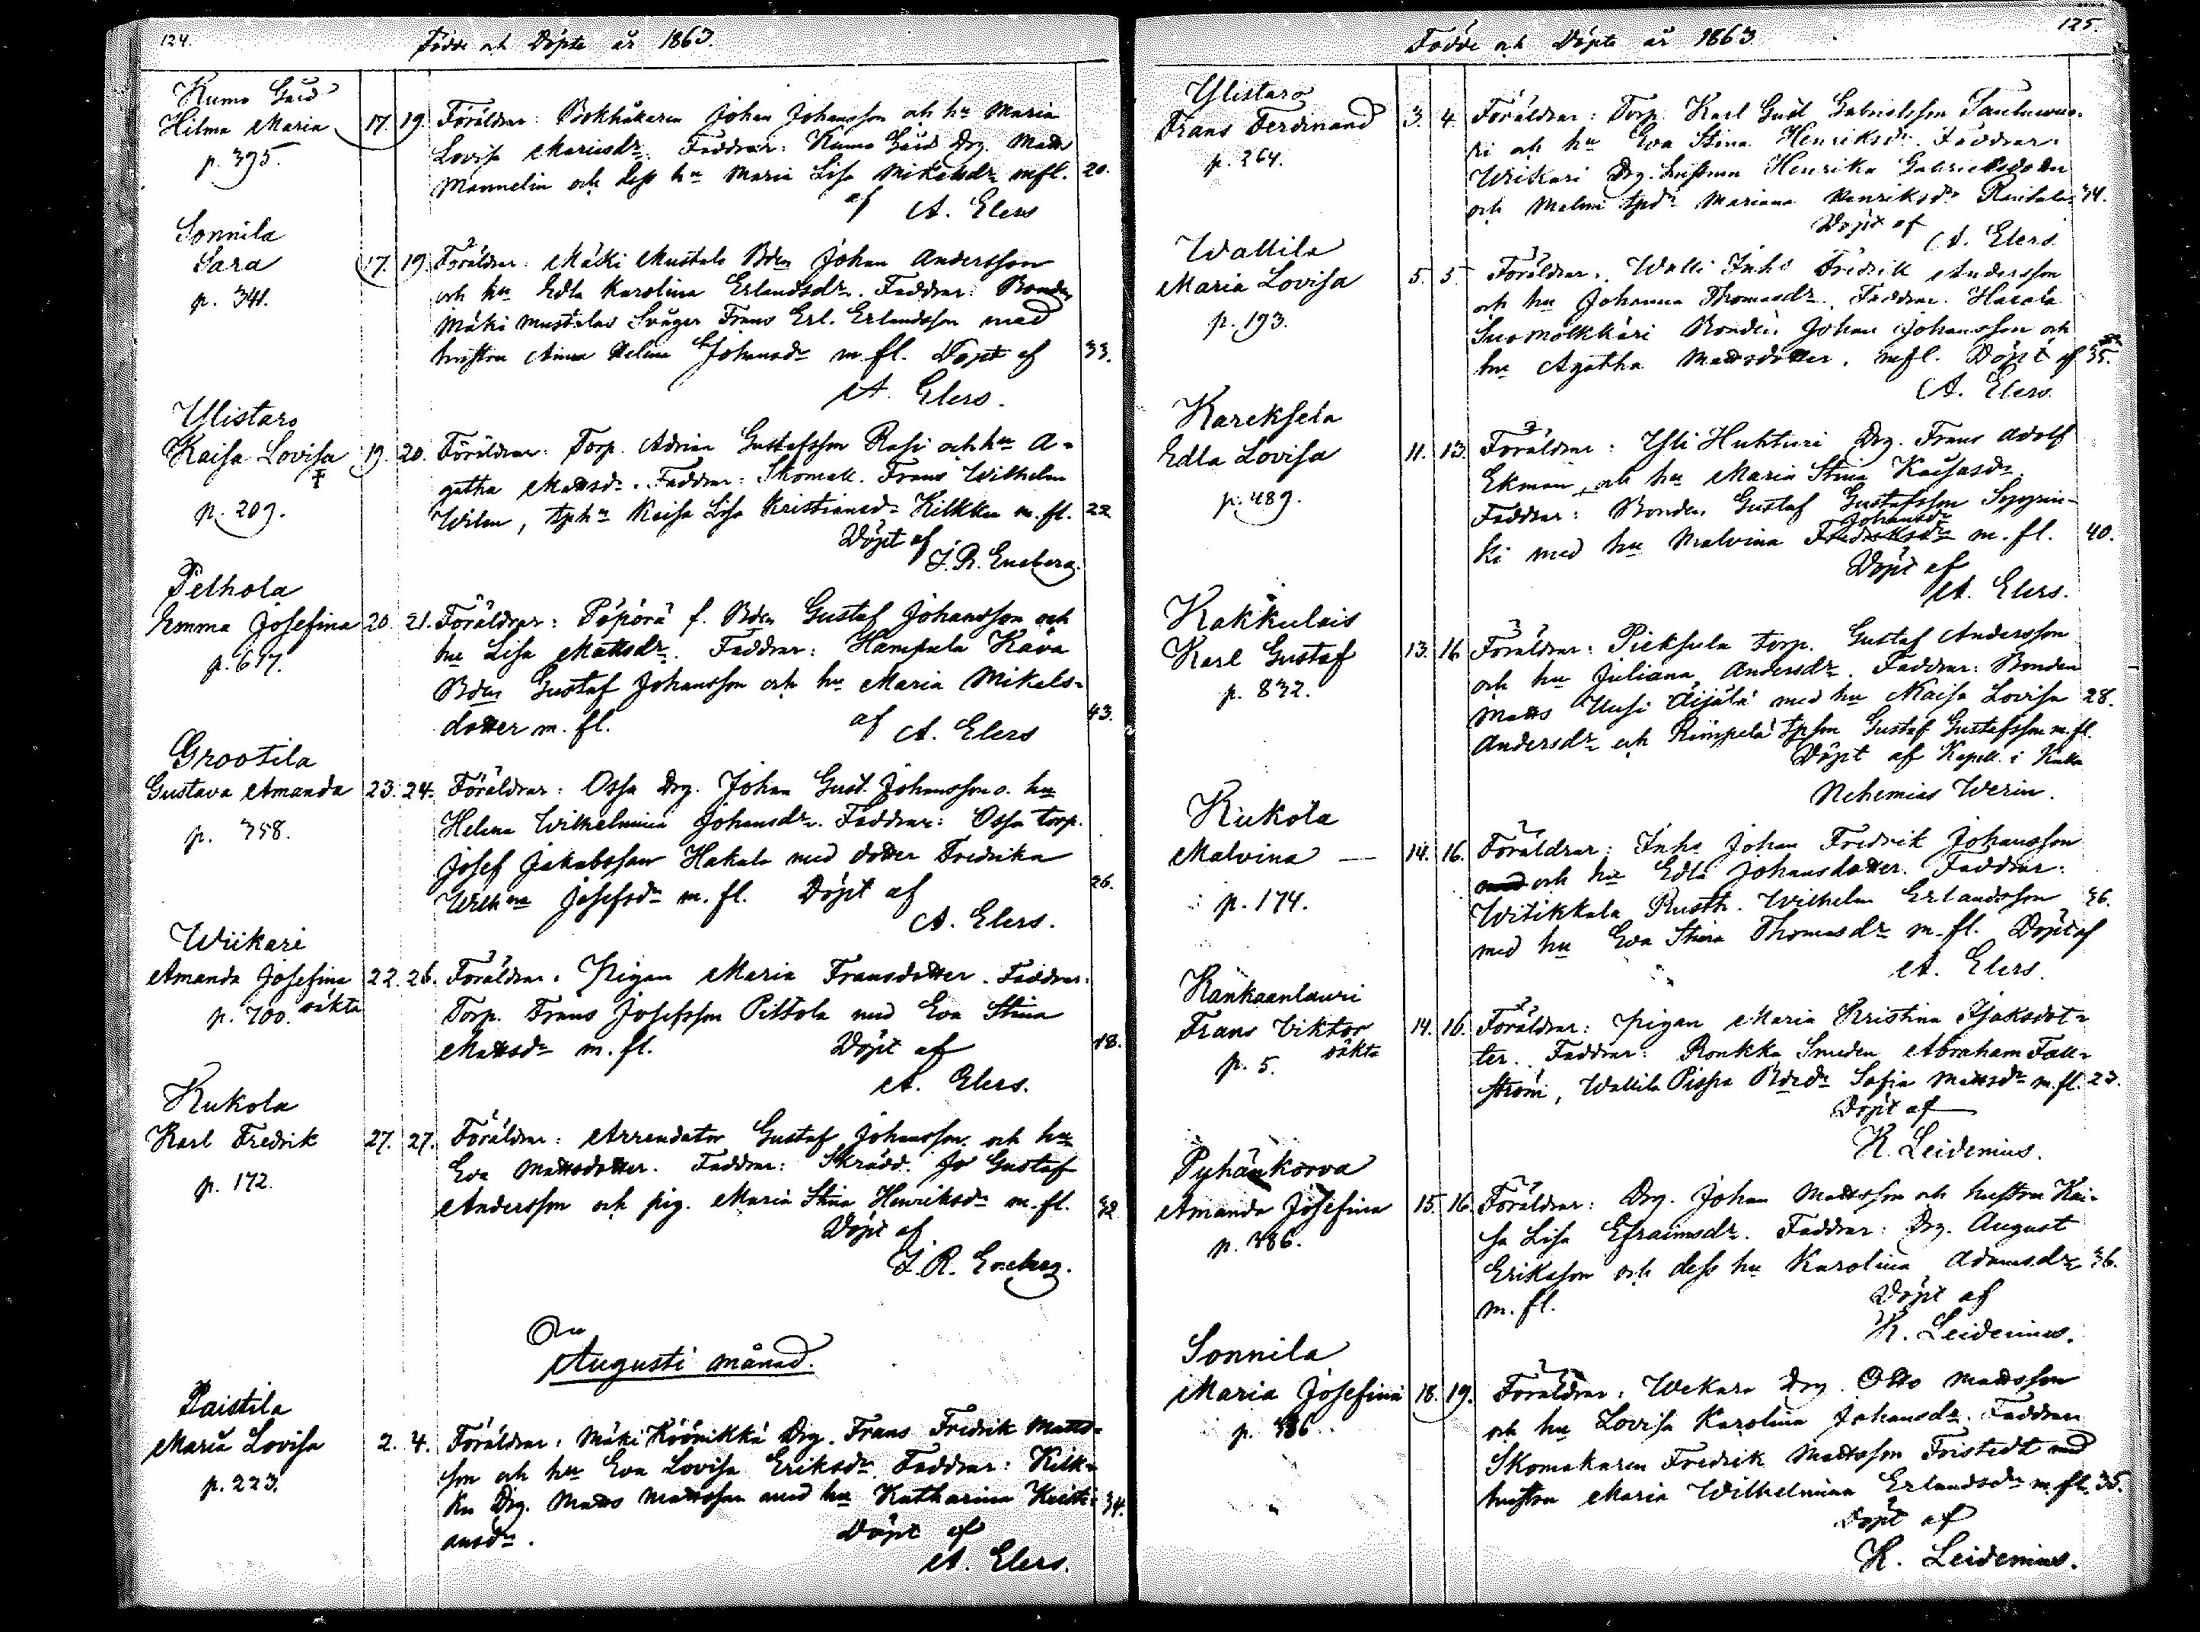 124.
Födde och Döpte år 1863.
Kumo Gård
Hilma Maria 17. 19. Föräldrar: Bokhållaren Johan Johansson och hu Maria
p. 395.
Lovisa Mariisdr. Faddrar: Kumo Gård Drg. Matts
Mannelin och dess hu Maria Lisa Mikelsdr mfl. 20.
af A. Elers
Sonnila
Sara 17. 19. Föräldrar: Mäki Mustala Bden Johan Andersson
p. 341.
och hu Edla Karolina Erlandsdr. Faddrar: Bonden
Mäki Mustalas Svåger Frans Erl. Erlandsson med
hustru Anna Helena Johansdr m. fl. Döpt af 33.
A. Elers.
Ylistaro
Kaisa Lovisa 19. 20. Föräldrar: Torp. Adrian Gustafsson Rasi och hu A-
p. 209.
gatha Mattsdr. Faddrar: Skomak. Frans Wilhelm
Wilen, tphu Kaisa Lisa Kristiansd. Kilkku m. fl. 22
Döpt af
J. R. Eneberg.
Pelhola
Emma Josefina 20. 21. Föräldrar: Pöpörä f. Bden Gustaf Johansson och
p. 617.
hu Lisa Mattsdr. Faddrar: Hampula Kävä
Bden Gustaf Johansson och hu Maria Mikels-
dotter m. fl. af A. Elers 43.
Grootila
Gustava Amanda 23. 24. Föräldrar: Ossa Drg. Johan Gust. Johansson o. hu
p. 358.
Helena Wilhelmina Johansdr. Faddrar: Ossa torp.
Josef Jakobsson Hakala med dotter Fredrika
Wilhna Josefsdr m. fl. Döpt af 26.
A. Elers.
Wiikari
Amanda Josefina 22. 26. Föräldrar: Pigan Maria Fransdotter. Faddrar:
p. 700. oäkta
Torp. Frans Josefsson Pittola med Eva Stina
Mattsdr m. fl. Döpt af 18.
A. Elers.
Kukola
Karl Fredrik 27. 27. Föräldrar: Arrendator Gustaf Johansson och hu
p. 172.
Eva Mattsdotter. Faddrar: Skrädd. Jo Gustaf
Andersson och pig. Maria Stina Henriksdr m. fl. 32
Döpt af
J. R. Eneberg.
Augusti månad.
Paistila
Maria Lovisa 2. 4. Föräldrar: MäkiKöönikkä Drg. Frans Fredrik Matts-
p. 223.
son och hu Eva Lovisa Eriksdr. Faddrar: Kilk-
ku Drg. Matts Mattsson med hu Katharina Kristi- 34.
ansdr. Döpt af
A. Elers.
125.
Födde och Döpte år 1863
Ylistaro
Frans Ferdinand 3. 4. Föräldrar: Torp. Karl Gust Gabrielsson
p. 264.
ri och hu Eva Stina Henriksdr. Faddrar:
Wiikari Drg. hustrun Henrika Gabrielsdotter
och Malmi tpdr Mariana Henriksdr 34.
Döpt af
A. Elers.
Wallila
Maria Lovisa 5. 5. Föräldrar: Walli Inhs Fredrik Andersson
p. 193.
och hu Johanna Thomasdr. Faddrar. Harola
Suomölkkäri Bonden Johan Johansson och
hu Agatha Mattsdotter. mfl. Döpt af 35.
A. Elers.
Kareksela
Edla Lovisa 11. 13. Föräldrar: Yli Huhturi Drg. Frans Adolf
p. 489.
Ekman, och hu Maria Stina Kaisasdr.
Faddrar: Bonden Gustaf Gustafsson
Johansdr
ki med hu Malvina Fredriksdr m. fl. 40.
Döpt af
A. Elers.
Kakkulais
Karl Gustaf 13. 16. Föräldrar: Pieksula torp. Gustaf Andersson
p. 832.
och hu Juliana Andersdr. Faddrar: Bonden
Matts Uusi Äijälä med hu Maija Lovisa 28.
Andersdr och Rimpelä tpson Gustaf Gustafsson m. fl.
Döpt af Kapell. i
Nehemias Werin.
Kukola
Malvina — 14. 16. Föräldrar: Inhs Johan Fredrik Johansson
p. 174.
med och hu Edla Johansdotter. Faddrar:
Witikkala Rusth. Wilhelm Erlandsson 36.
med hu Eva Stina Thomasdr m. fl. Döpt af
A. Elers.
Kankaanlauri
Frans Viktor 14. 16. Föräldrar: Pigan Maria Kristina Isaksdot-
oäkta
p. 5.
ter. Faddrar: Ronkka Smeden Abraham Fall-
ström, Wallila Pispa Bdedr Sofia Mattsdr m. fl. 23.
Döpt af
K. Leidenius.
Pyhänkorva
Amanda Josefina 15. 16. Föräldrar: Drg. Johan Mattsson och hustru Kai-
p. 386.
sa Lisa Efraimsdr. Faddrar: Drg. August
Eriksson och dess hu Karolina Adamsdr 36.
m. fl. Döpt af
K. Leidenius.
Sonnila
Maria Josefina 18. 19. Föräldrar: Wekara Drg. Otto Mattsson
p. 336.
och hu Lovisa Karolina Johansdr. Faddrar
Skomakaren Fredrik Mattsson Fristedt med
hustru Maria Wilhelmina Erlandsdr m. fl. 35.
Döpt af
K. Leidenius.